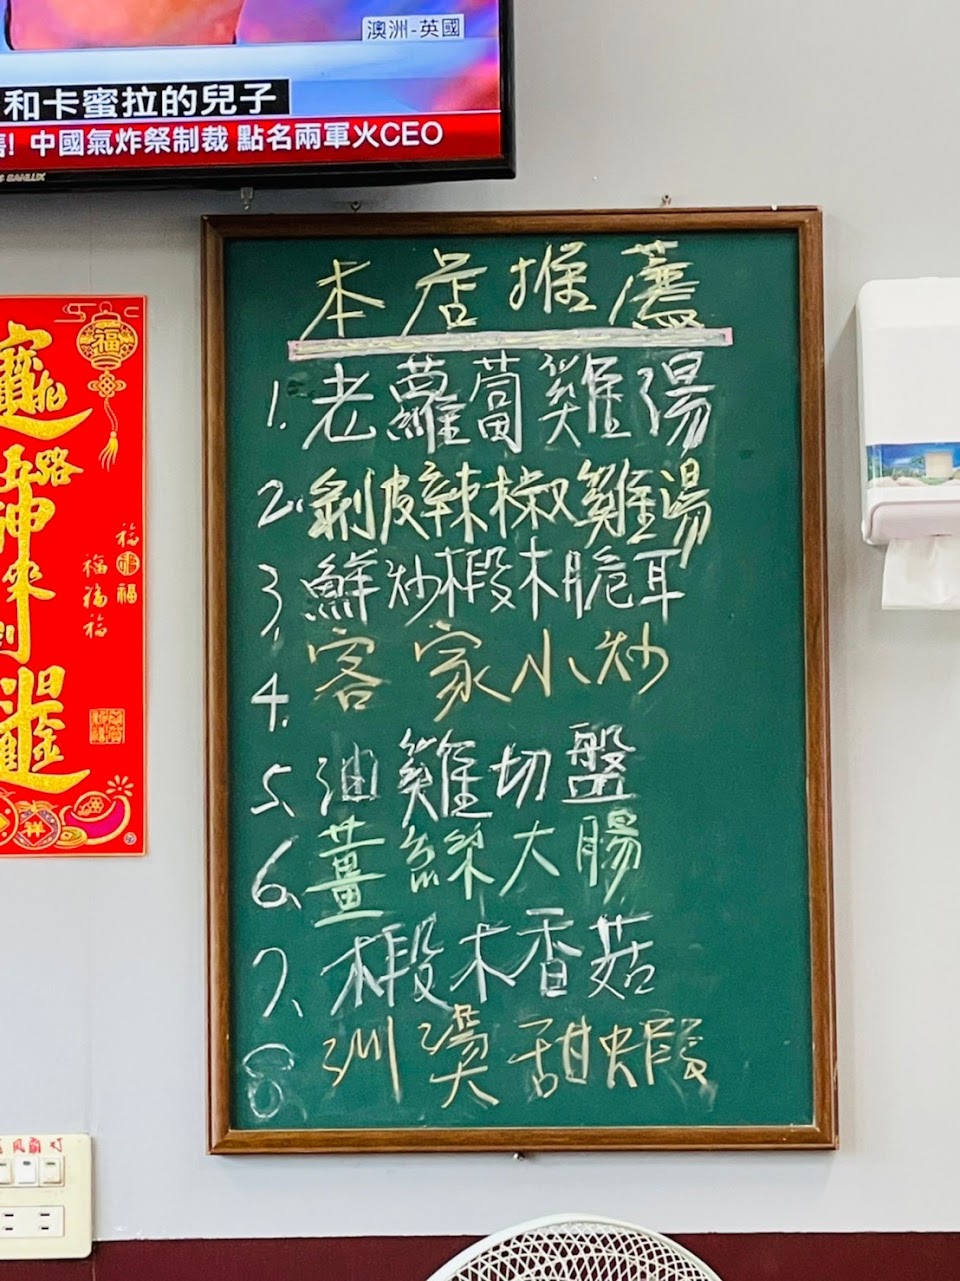 澳洲-英國
和卡蜜拉的兒子
! 中國氣炸祭制裁 點名兩軍火CEO
SANLUX
本店推薦
1.老蘿蔔雞湯
2.剝皮辣椒雞湯
3.鮮炒椴木脆耳
4.客家小炒
5.油雞切盤
6.薑絲大腸
7.椴木香菇
8 川燙甜蝦
福
路
神
來
福
福
福
福
福
祥
風扇 灯